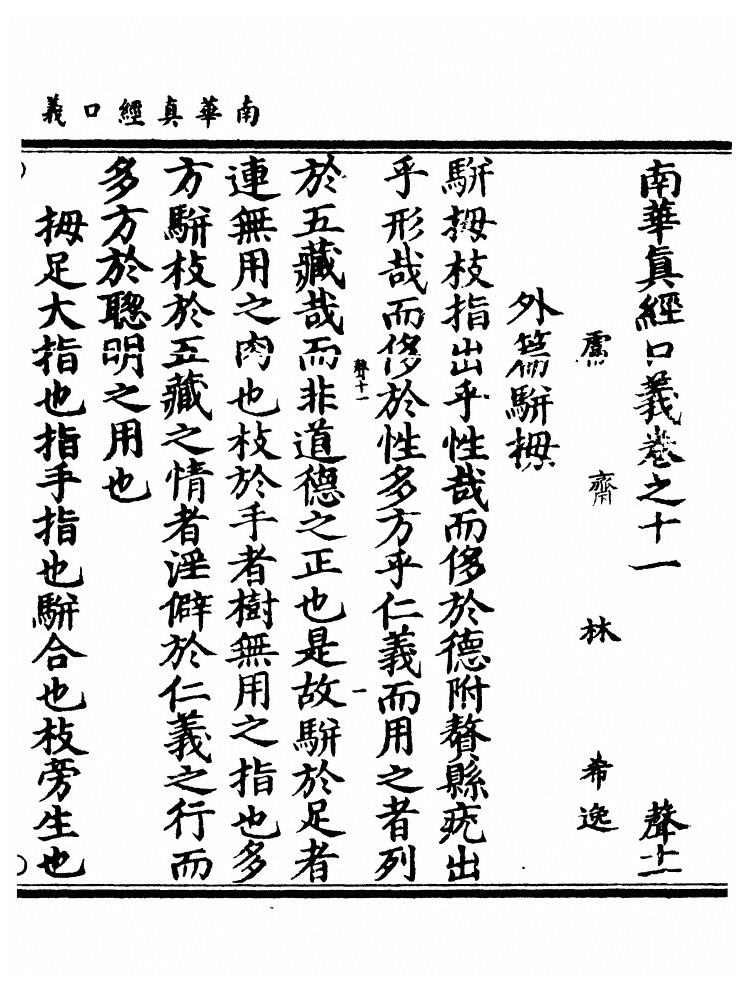 南華真經口義
南華眞經口義卷之十一　聲十一
鬳齋林希逸
外篇駢拇
駢拇枝指出乎性哉而侈於德附贅縣疣出
乎形哉而侈於性多方乎仁義而用之者列
聲十一　一
於五藏哉而非道德之正也是故駢於足者
連無用之肉也枝於手者樹無用之指也多
方駢枝於五藏之情者淫僻於仁義之行而
多方於聦明之用也
拇足大指也指手指也駢合也枝旁生也